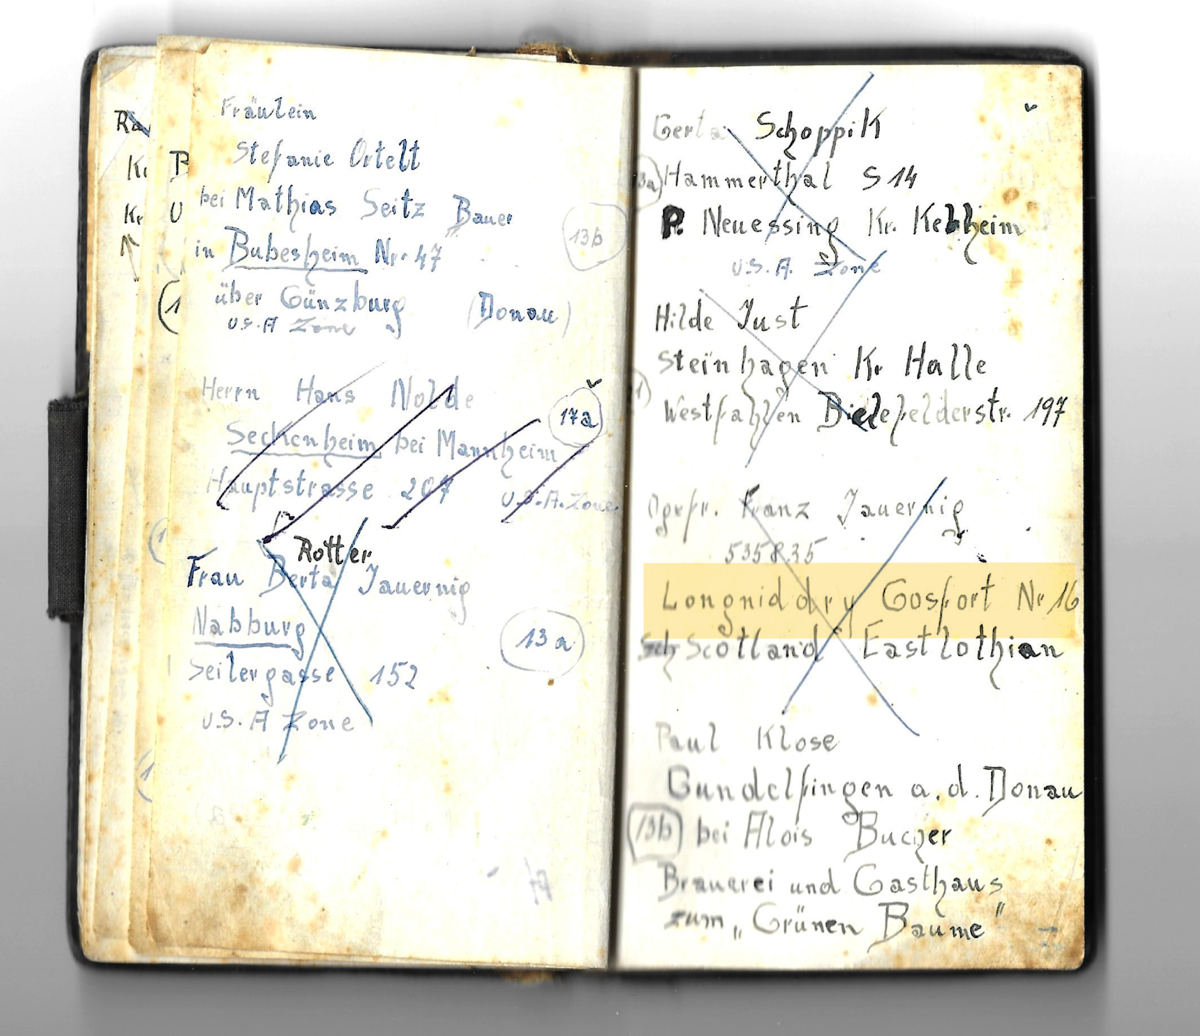 Fräulein
Stefanie Ortelt
bei Mathias Seitz Bauer
in Bubesheim Nr. 47
13b
über Günzburg (Donau)
U.S.A Zone
Herrn Hans Nolde
17a
Seckenheim bei Mannheim
Hauptstrasse 207 U.S.A. Zone
Rotter
Frau Berta Jauernig
Nabburg
13a
Seilergasse 152
U.S.A Zone
Gerta Schoppik
13a Hammerthal S 14
P. Neuessing Kr. Kehlheim
U.S.A. Zone
Hilde Just
Steinhagen Kr Halle
Westfahlen Bielefelderstr. 197
Ogefr. Franz Jauernig
535835
Longniddry Gosfort Nr 16
Scotland Eastlothian
Paul Klose
Gundelfingen a.d. Donau
13b bei Alois Bucher
Brauerei und Gasthaus
zum „Grünen Baume"